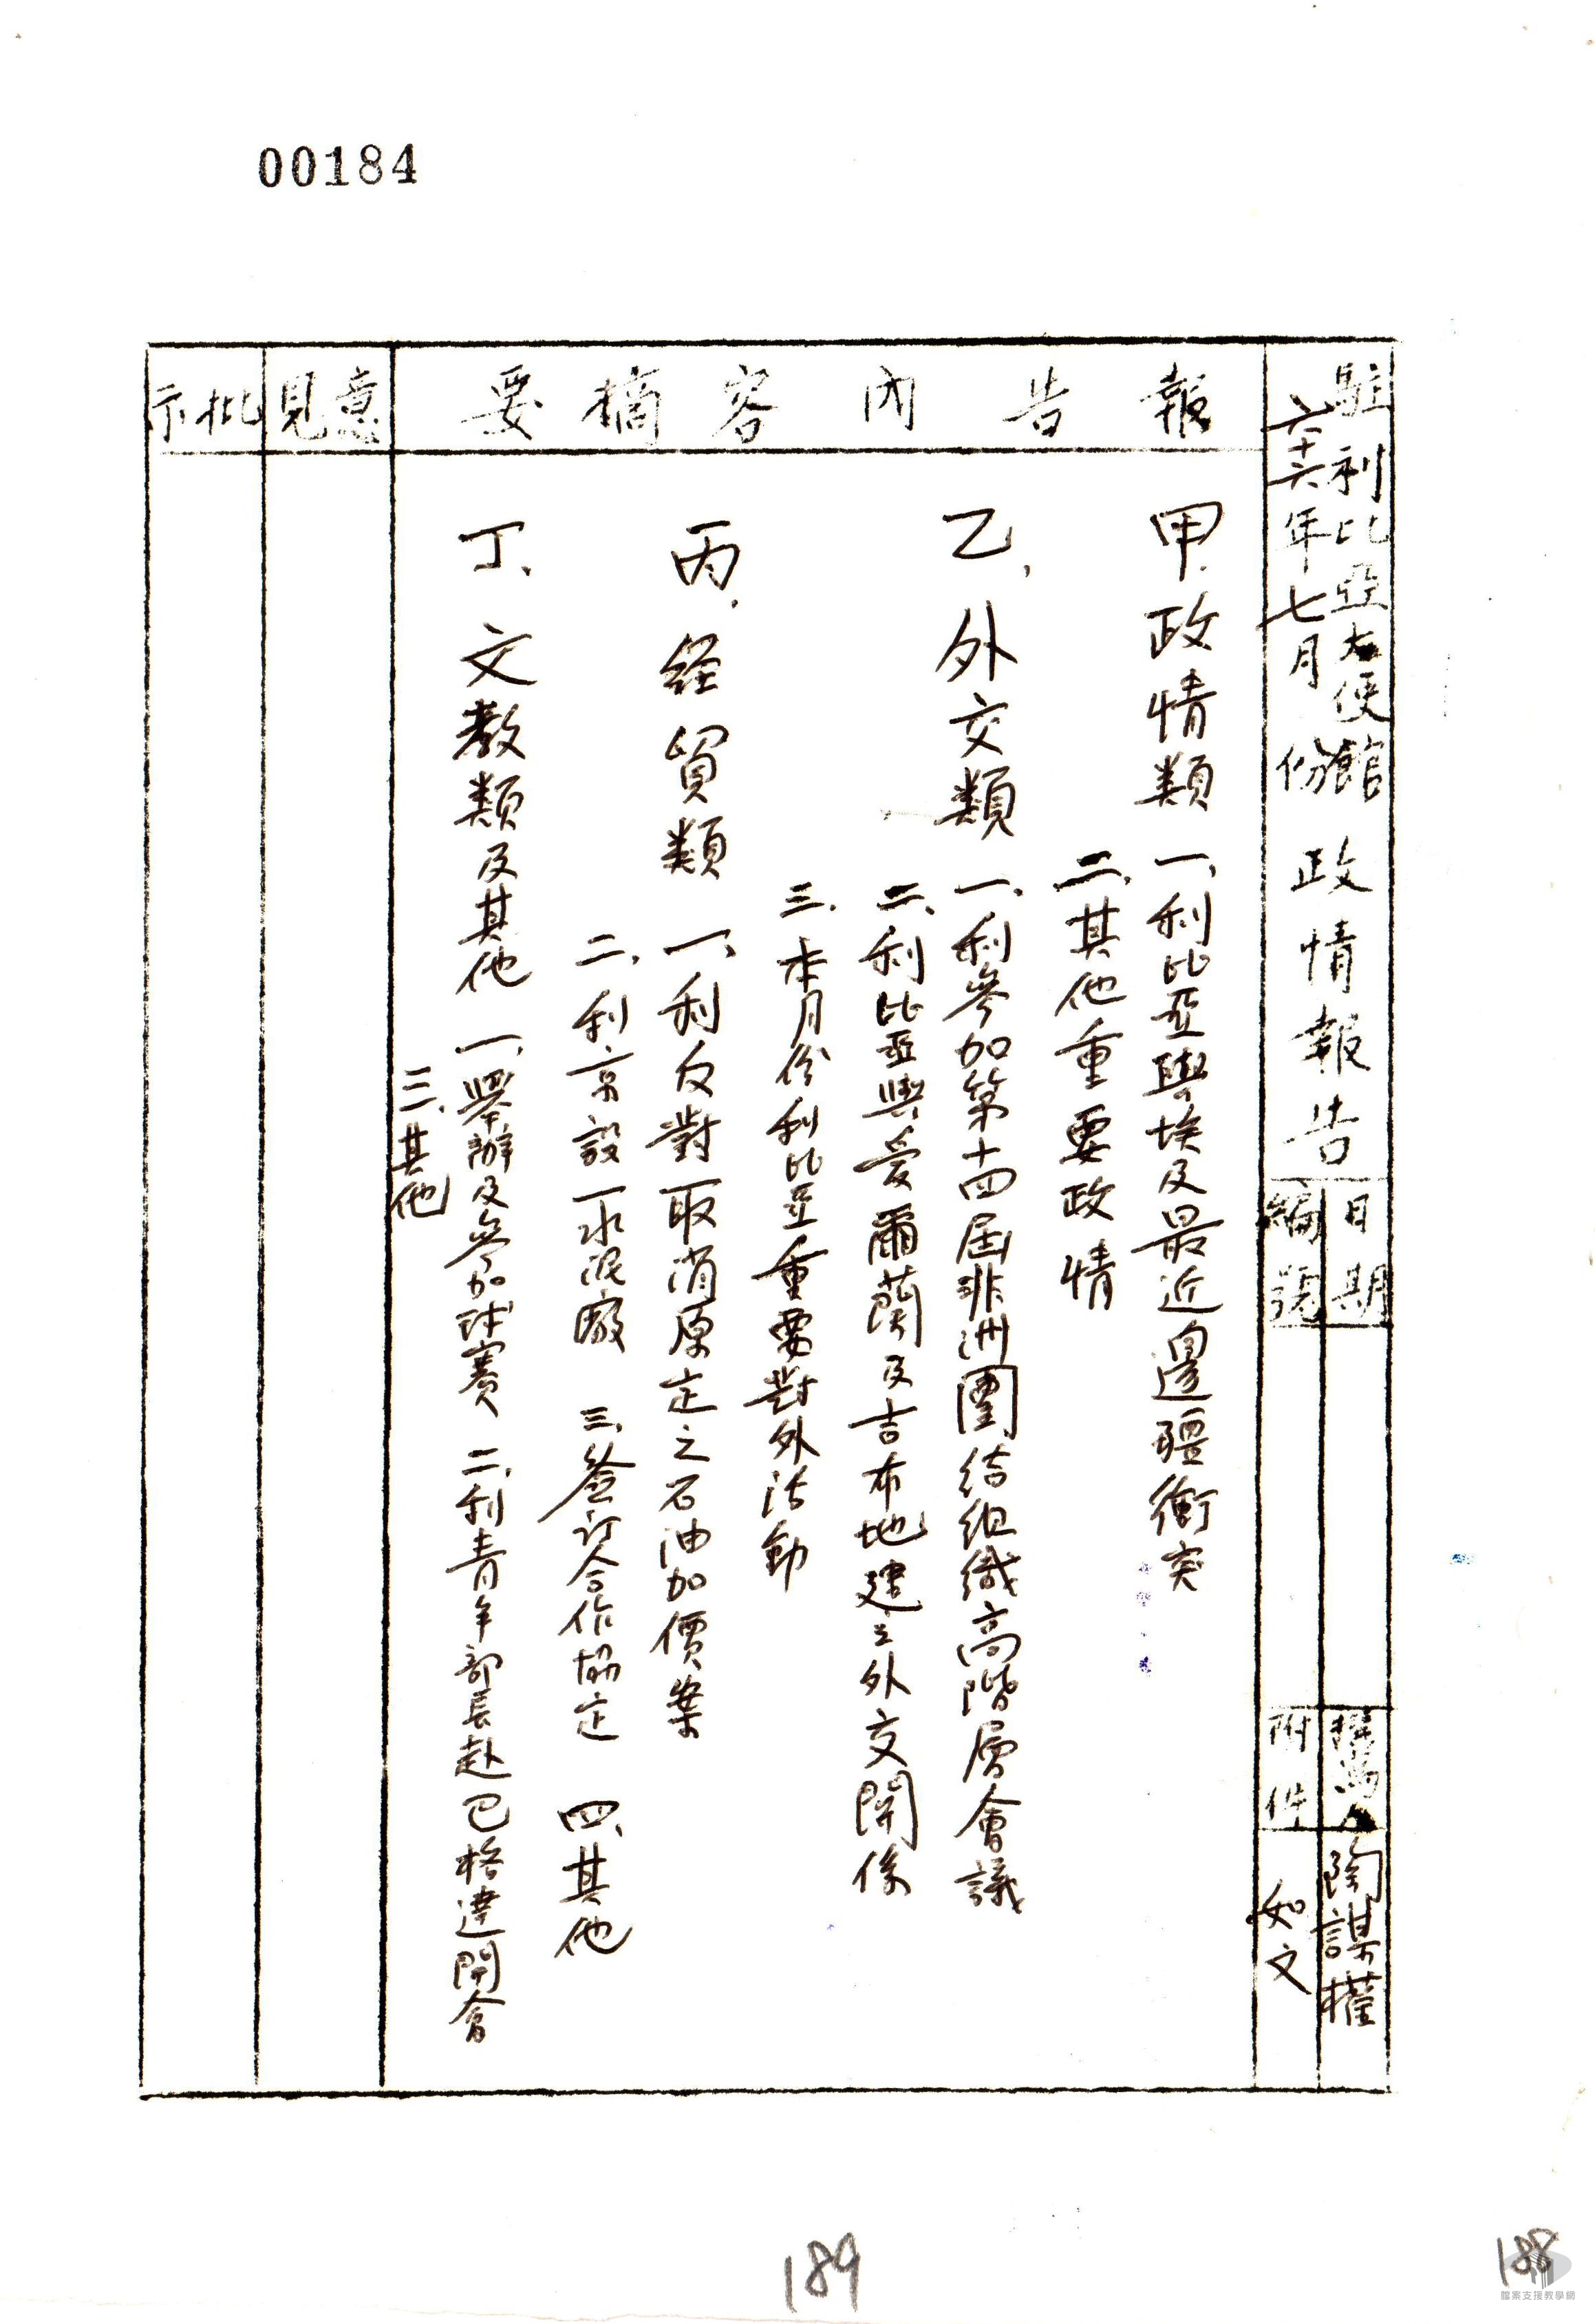 00184
駐利比亞大使館
六十六年七月份
政情報告
日期
編號
撰寫人
陶謀權
附件
如文
報告內容摘要
甲、政情類 一、利比亞與埃及最近邊疆衝突
二、其他重要政情
乙、外交類 一、利參加第十四屆非洲團結組織高階層會議
二、利比亞與愛爾蘭及吉布地建立外交關係
三、本月份利比亞重要對外活動
丙、經貿類 一、利反對取消原定之石油加價案
二、利京設一水泥廠 三、簽訂合作協定 四、其他
丁、文教類及其他 一、舉辦及參加球賽 二、利青年部長赴巴格達開會
三、其他
意見
批示
189
188
檔案支援教學網